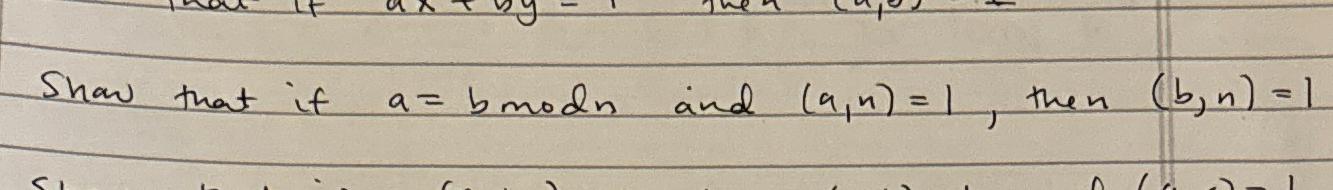 that if ax + by = 1 then (a,b) = 1
Show that if a = b mod n and (a,n) = 1, then (b,n) = 1